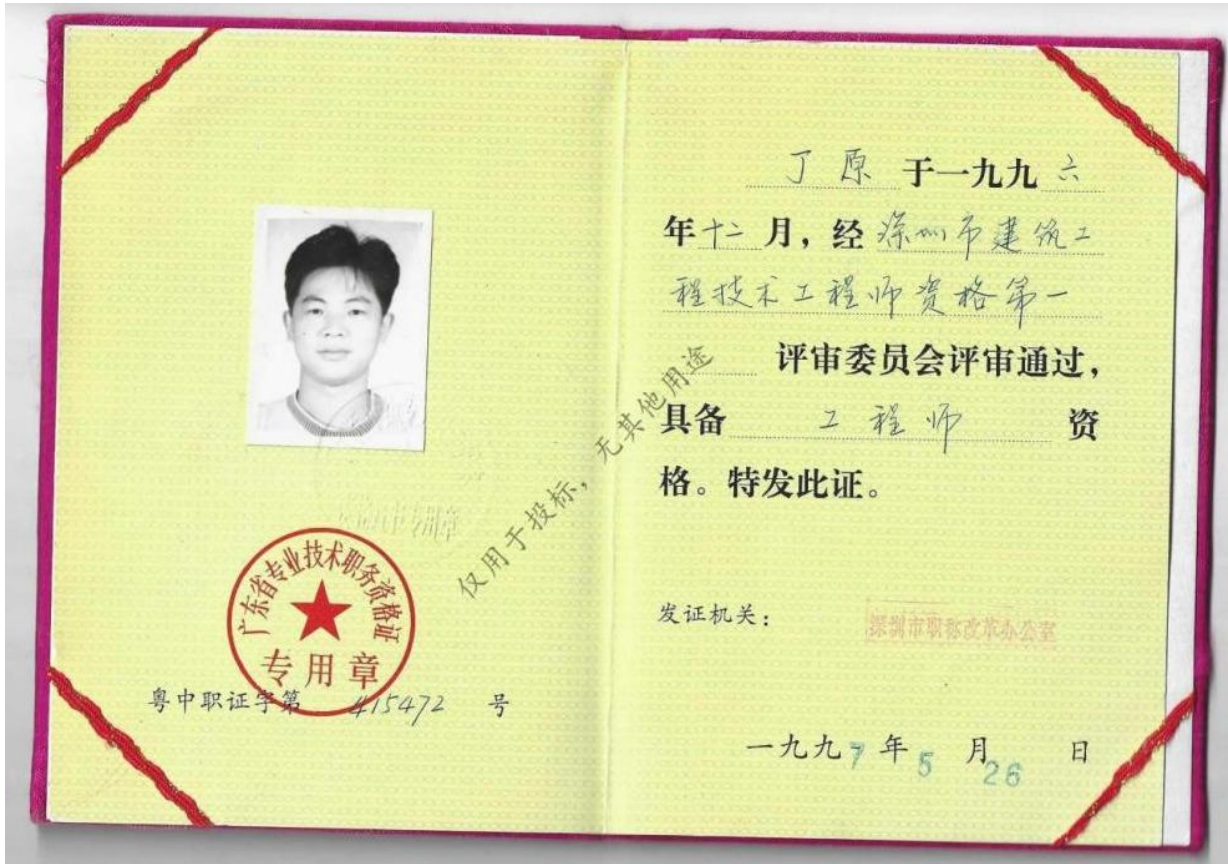 广东省专业技术职务资格证
专用章
粤中职证字第 415472 号
仅用于投标，无其他用途
丁原 于一九九六
年十二月，经 深圳市建筑工
程技术工程师资格第一
评审委员会评审通过，
具备 工程师 资
格。特发此证。
发证机关：
深圳市职称改革办公室
一九九7年5月26日